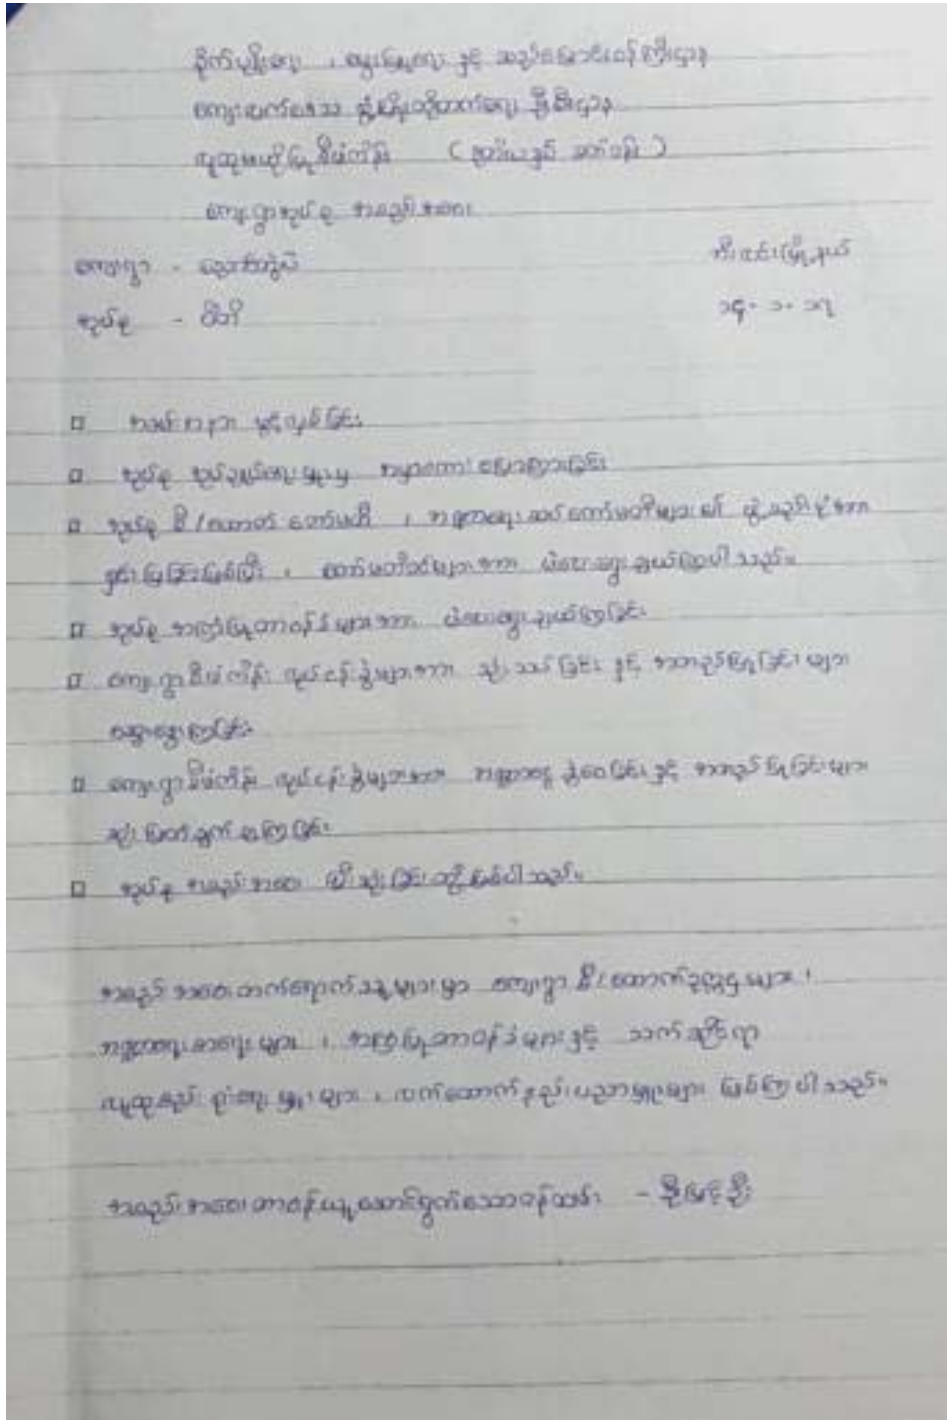 စိုက်ပျိုးရေး ၊ မွေးမြူရေး နှင့် ဆည်မြောင်းဝန်ကြီးဌာန
ကျေးလက်ဒေသ ဖွံ့ဖြိုးတိုးတက်ရေး ဦးစီးဌာန
လူထုဗဟိုပြုစီမံကိန်း ( ဒုတိယနှစ် စက်ဝန်း )
ကျေးရွာအုပ်စု အစည်းအဝေး
ကျေးရွာ -
အုပ်စု - ဝီတီ
မြို့နယ်
၁၄. ၁. ၁၇
□ အခမ်းအနား ဖွင့်လှစ်ခြင်း
□ အုပ်စု အုပ်ချုပ်ရေးမှူးမှ အမှာစကား ပြောကြားခြင်း
□ အုပ်စု စီ/ထောက် ကော်မတီ ၊ ဘဏ္ဍာရေးဆပ်ကော်မတီများ၏ ဖွဲ့စည်းပုံအား
ရှင်းပြခြင်းဖြစ်ပြီး ၊ ကော်မတီဝင်များအား မဲပေးရွေးချယ်ကြပါသည်။
□ အုပ်စု အကြံပြုတာဝန်ခံများအား မဲပေးရွေးချယ်ကြခြင်း
□ ကျေးရွာစီမံကိန်း လုပ်ငန်းခွဲများအား သုံးသပ်ခြင်း နှင့် အတည်ပြုခြင်းများ
ဆွေးနွေးကြခြင်း
□ ကျေးရွာစီမံကိန်း လုပ်ငန်းခွဲများအား ဘဏ္ဍာငွေ ခွဲဝေခြင်း နှင့် အတည်ပြုခြင်းများ
ဆုံးဖြတ်ချက် ချကြခြင်း
□ အုပ်စု အစည်းအဝေး ပြီးဆုံးခြင်းတို့ဖြစ်ပါသည်။
အစည်းအဝေးတက်ရောက်သူများမှာ ကျေးရွာ စီ/ထောက်ဥက္ကဋ္ဌများ ၊
ဘဏ္ဍာရေးစာရေးများ ၊ အကြံပြုတာဝန်ခံများနှင့် သက်ဆိုင်ရာ
လူထုစည်းရုံးရေးမှူးများ ၊ လက်ထောက်နည်းပညာမှူးများ ဖြစ်ကြပါသည်။
အစည်းအဝေးတာဝန်ယူဆောင်ရွက်သောဝန်ထမ်း - ဦးမြင့်ဦး